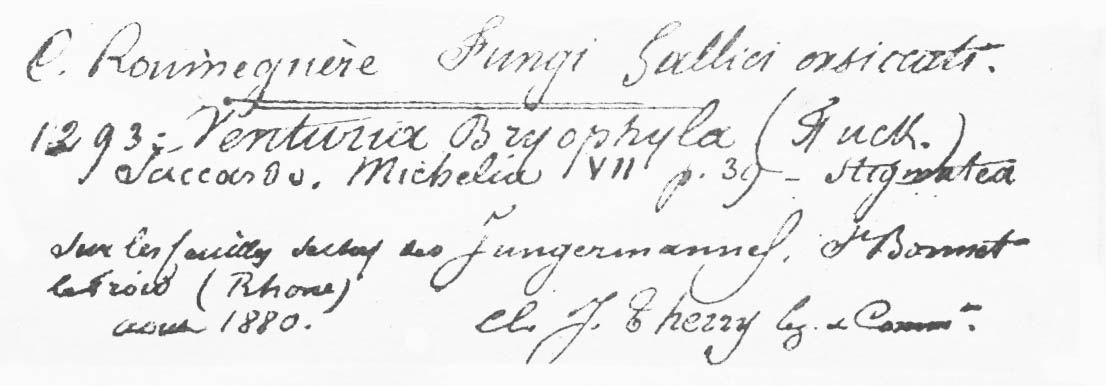 C. Roumeguère Fungi Gallici exsiccati.
1293. Venturia Bryophyla (Fuck.)
Saccardo. Michelia VII p. 39 - Stigmatea
Sur les feuilles sèches des Jungermannes. St Bonnet
le Froid (Rhone)
aout 1880. cl. J. Therry leg. & Comm.